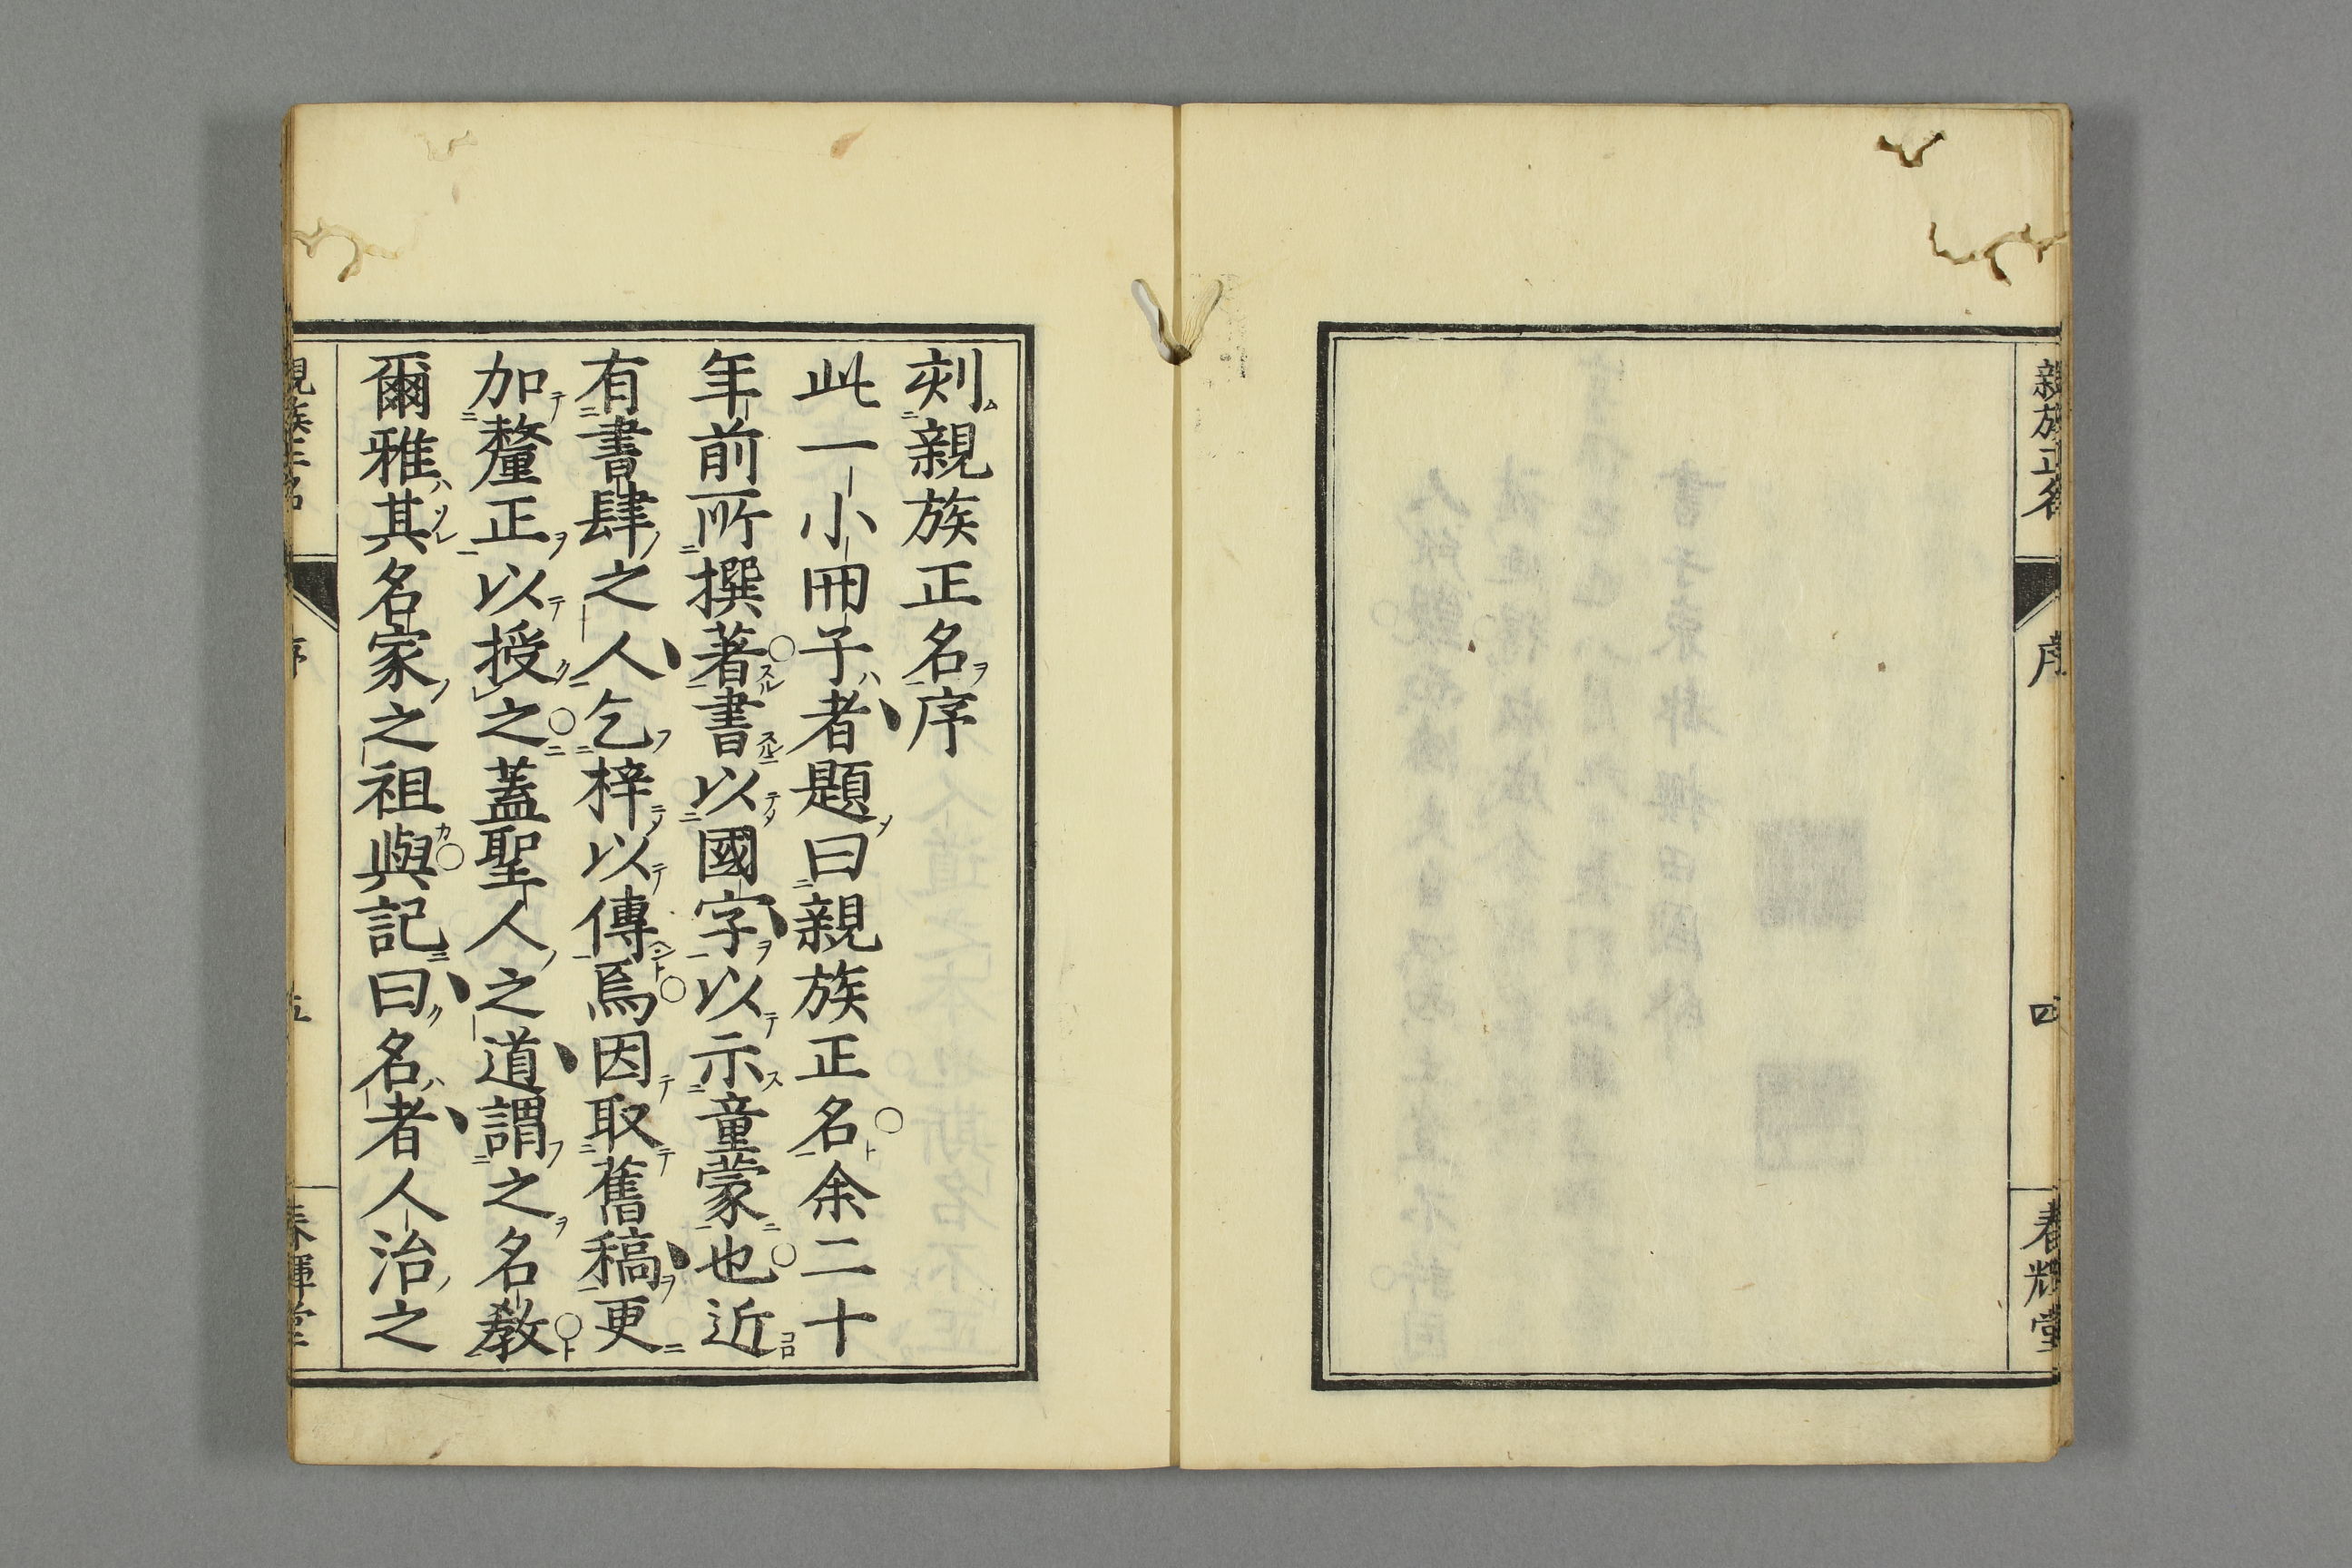 親族正名 序 四 春輝堂
刻親族正名序
此一小冊子者題曰親族正名余二十
年前所撰著書以國字以示童蒙也近
有書肆之人乞梓以傳焉因取舊稿更
加釐正以授之蓋聖人之道謂之名教
爾雅其名家之祖與記曰名者人治之